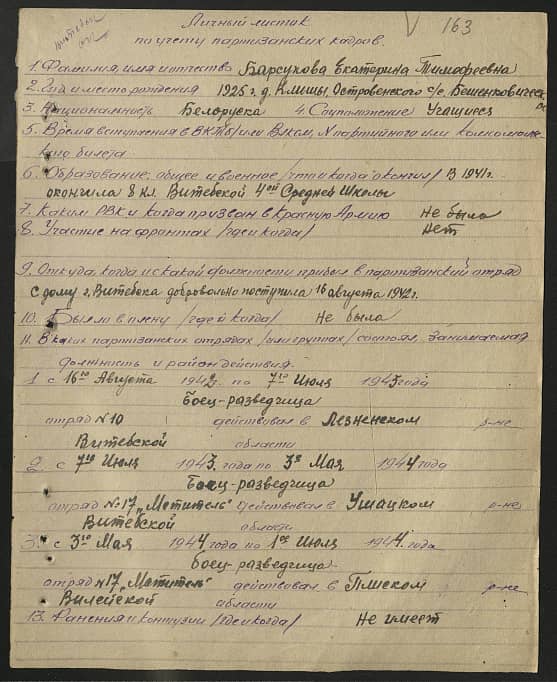 Личный листик
163
по учету партизанских кадров.
1. Фамилия, имя и отчество Барсукова Екатерина Тимофеевна
2. Год и место рождения 1926 г. д. Климцы, Островенского с/с, Бешенковичск
3. Национальность Белоруска 4. Соцположение Учащиеся
5. Время вступления в ВКПб/или Влксм, N партийного или комсомоль
ского билета
6. Образование, общее и военное /что и когда окончил/ В 1941 г.
окончила 8 кл. Витебской 4ой Средней Школы
7. Каким РВК и когда призван в Красную Армию Не была
8. Участие на фронтах /где и когда/ Нет
9. Откуда, когда и с какой должности прибыл в партизанский отряд
С дому г. Витебска добровольно поступила 16 августа 1942 г.
10. Был ли в плену /где и когда/ Не была
11. В каких партизанских отрядах /или группах/ состоял, занимаемая
должность и район действия.
1 с 16го Августа 1942. по 7го Июля 1943 года
Боец-разведчица
отряд N 10 действовал в Лезненском р-не
Витебской области
2. с 7го Июля 1943. года по 3е Мая 1944 года
Боец-разведчица
отряд N 17 "Мститель" действовал в Ушацком р-не
Витебской области
3. с 3го Мая 1944 года по 1ое Июля 1944. года
боец-разведчица
отряд N 17 "Мститель" действовал в Плиском р-не
Вилейской области
13. Ранения и контузии /где и когда/ Не имеет